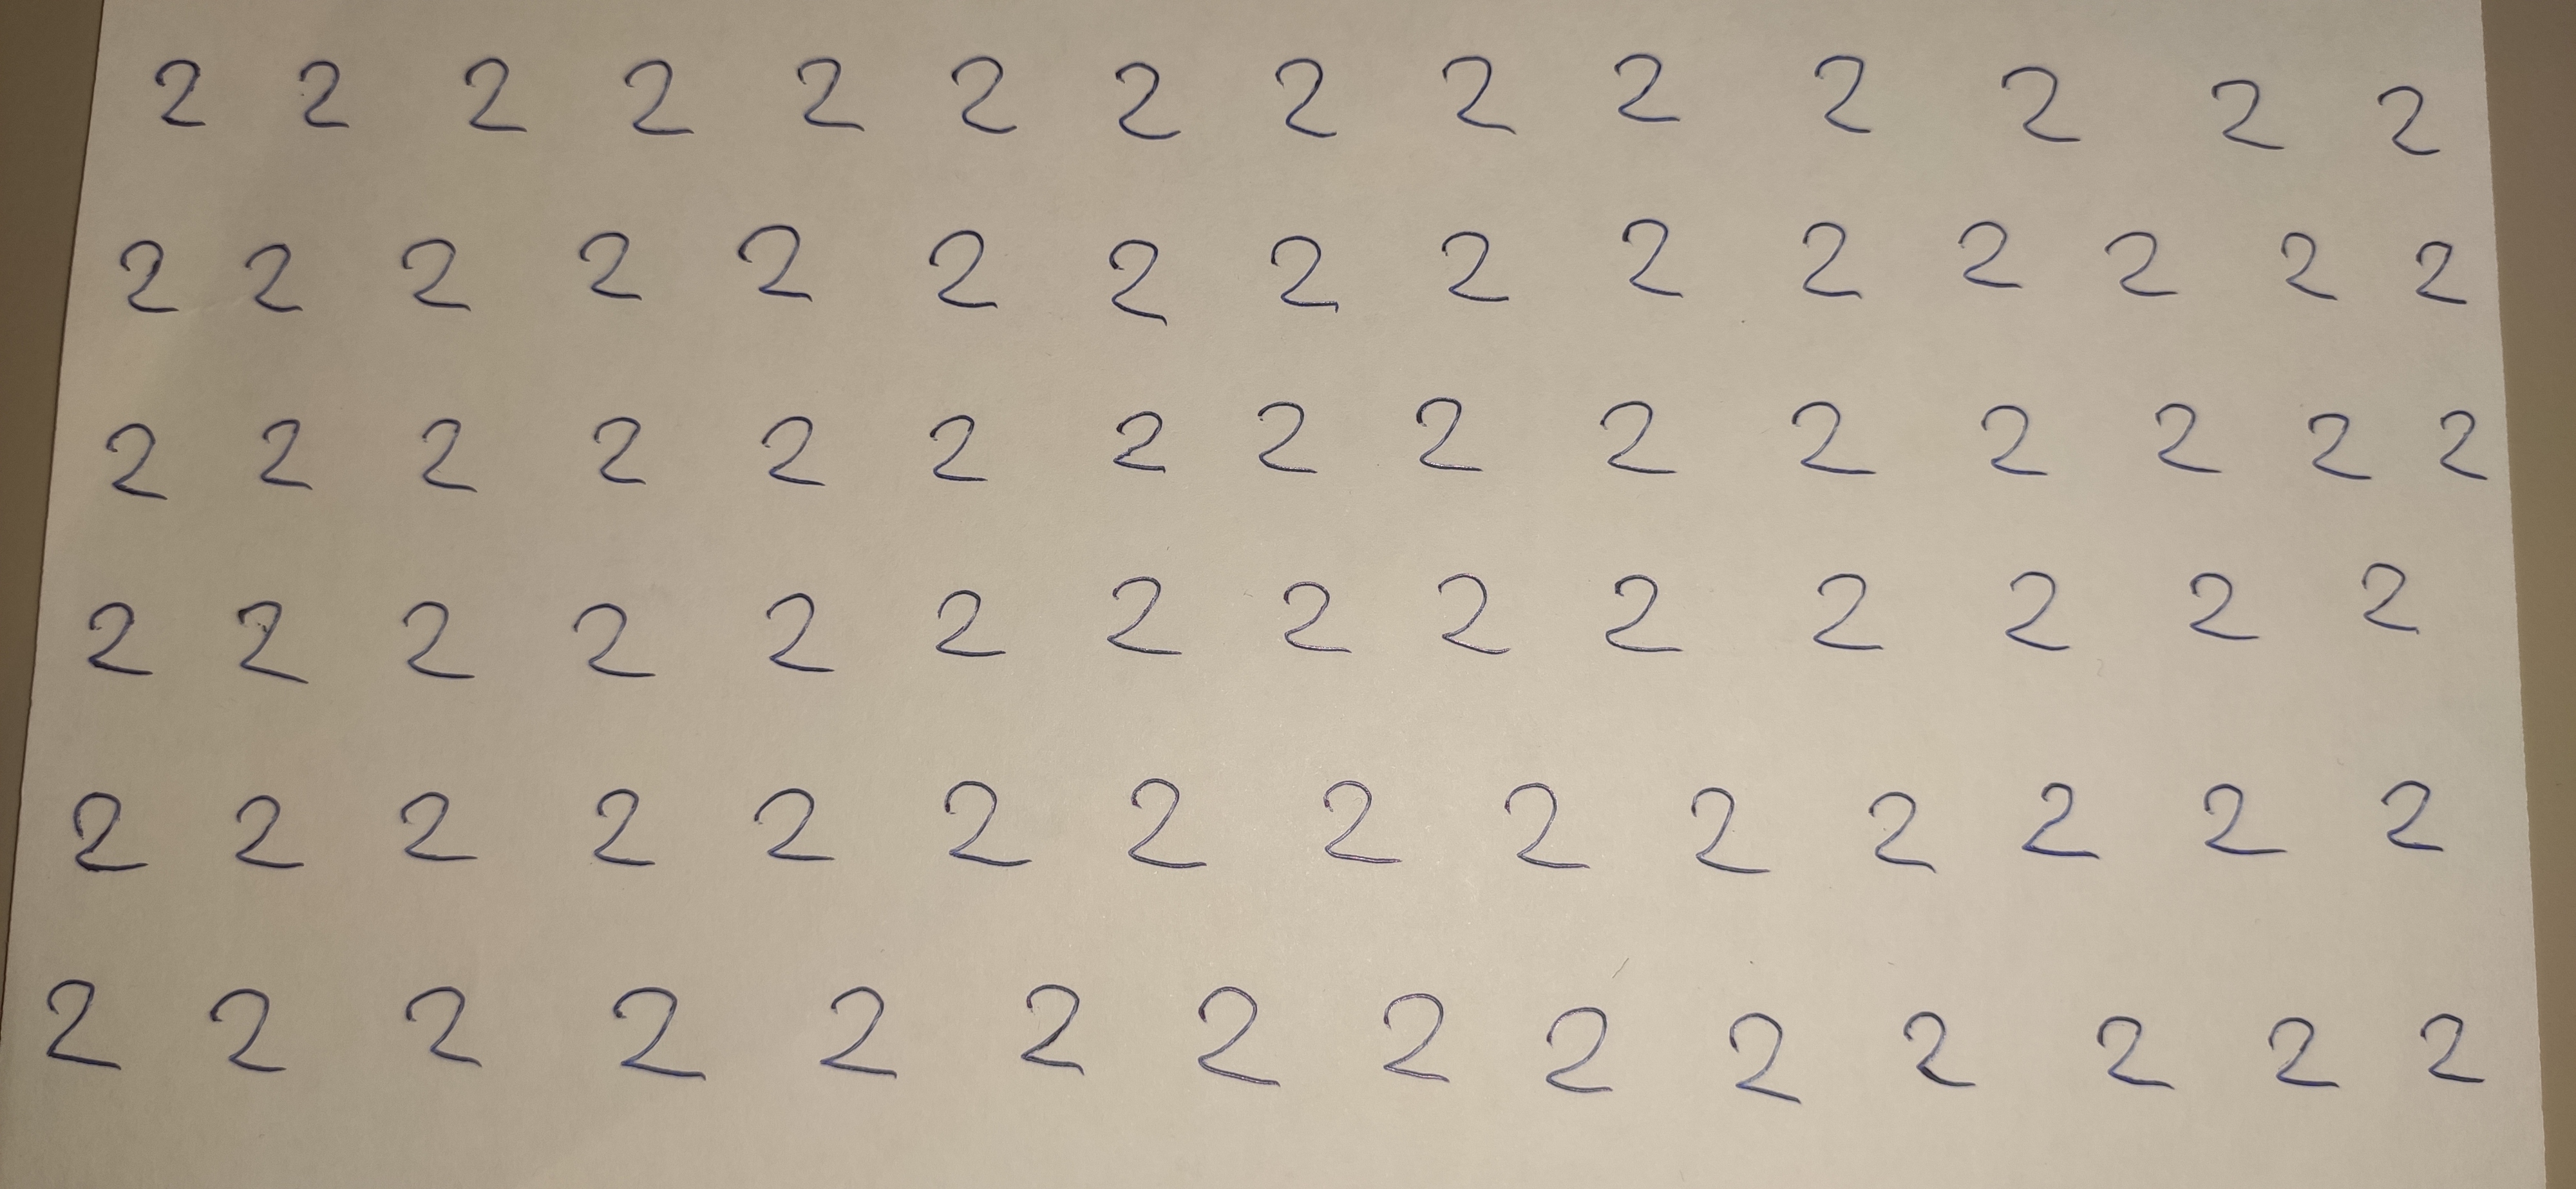 2 2 2 2 2 2 2 2 2 2 2 2 2 2
2 2 2 2 2 2 2 2 2 2 2 2 2 2 2
2 2 2 2 2 2 2 2 2 2 2 2 2 2 2
2 2 2 2 2 2 2 2 2 2 2 2 2 2
2 2 2 2 2 2 2 2 2 2 2 2 2 2
2 2 2 2 2 2 2 2 2 2 2 2 2 2